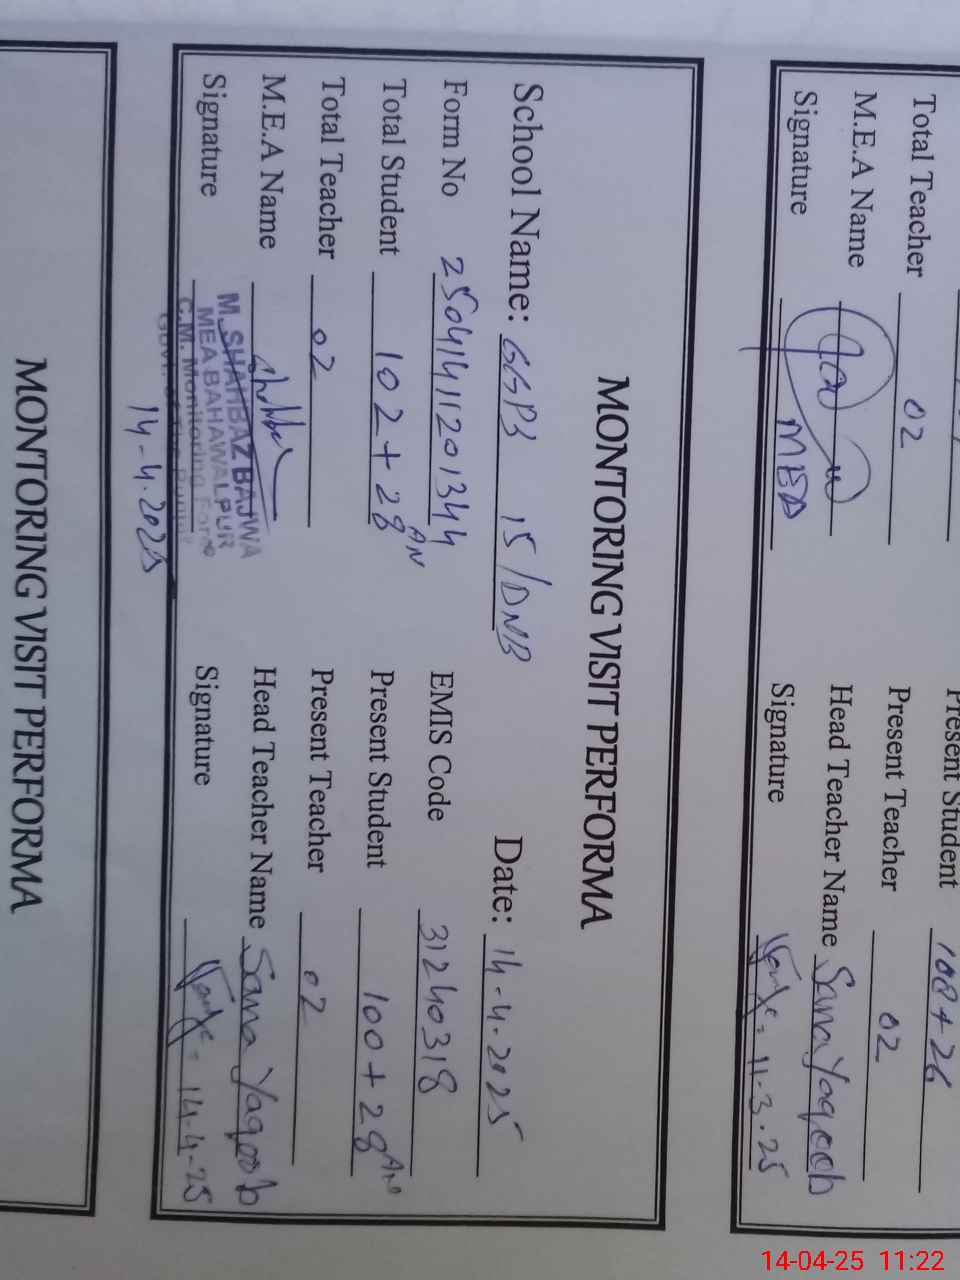 Present Student 108+26
Total Teacher 02 Present Teacher 02
M.E.A Name Head Teacher Name Sana Yaqoob
Signature MEA Signature 11.3.25
MONTORING VISIT PERFORMA
School Name: GGPS 15/DNB Date: 14-4-2025
Form No 25041411201344 EMIS Code 31240318
Total Student 102+28 AN Present Student 100+28 AN
Total Teacher 02 Present Teacher 02
M.E.A Name Head Teacher Name Sana Yaqoob
Signature Signature 14-4-25
M. SHAHBAZ BAJWA
MEA BAHAWALPUR
C.M. Monitoring Force
14-4-2025
MONTORING VISIT PERFORMA
14-04-25 11:22